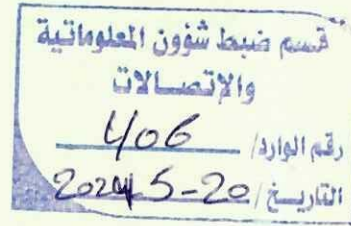 قسم ضبط شؤون المعلوماتية
والإتصالات
رقم الوارد/ 406
التاريخ/ 20-5-2024